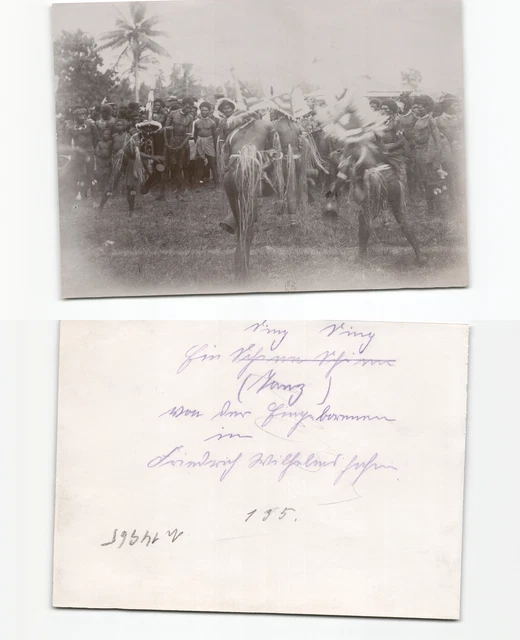 Sing Sing
Ein
(Tanz)
von der Eingeborenen
in
Friedrich Wilhelmshafen.
195.